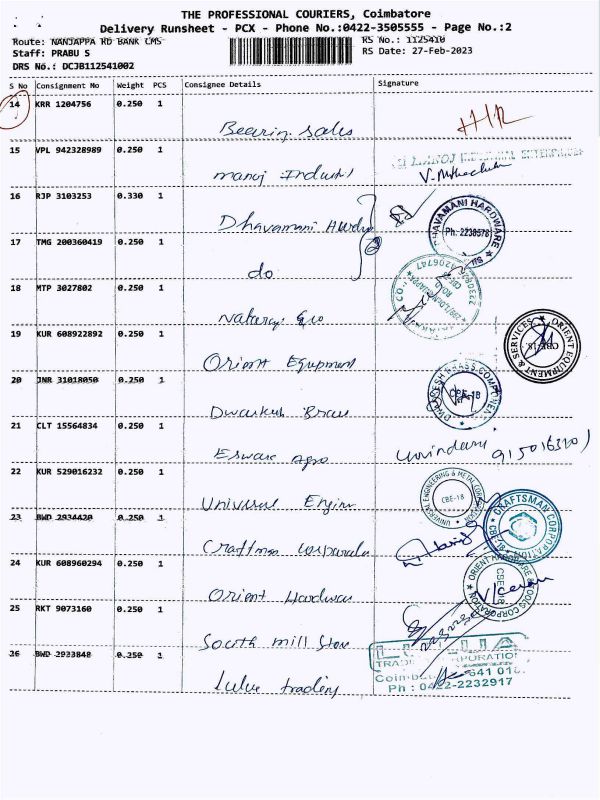 THE PROFESSIONAL COURIERS, Coimbatore
Delivery Runsheet - PCX - Phone No.:0422-3505555 - Page No.:2
Route: NANJAPPA RD BANK CMS RS No.: 1125410
Staff: PRABU S RS Date: 27-Feb-2023
DRS No.: DCJB112541002
S No Consignment No Weight PCS Consignee Details Signature
14 KRR 1204756 0.250 1
Bearing sales
15 VPL 942328989 0.250 1
manoj Industri
16 RJP 3103253 0.330 1
Dhavamani Hardw
DHAVAMANI HARDWARE
Ph: 2230578
17 TMG 200360419 0.250 1
do
18 MTP 3027802 0.250 1
Nataraj
19 KUR 608922892 0.250 1
Orient Equipment
ORIENT EQUIPMENT & SERVICES
CBE-18
20 JNR 31018050 0.250 1
Dwarkesh Brass
DWARKESH BRASS COMPONENT
CBE-18
21 CLT 15564834 0.250 1
Eswar Agro
22 KUR 529016232 0.250 1
Universal Engin
UNIVERSAL ENGINEERING & METAL CORPORATION
CBE-18
23 BWD 2934420 0.250 1
Craftman Corporatio
CRAFTSMAN CORPORATION
24 KUR 608960294 0.250 1
Orient Hardwar
ORIENT HARDWARE & TOOLS CORPORATION
CBE-18
25 RKT 9073160 0.250 1
South mill Store
26 BWD 2933848 0.250 1
Lulu trading
641 018
Ph : 0422-2232917